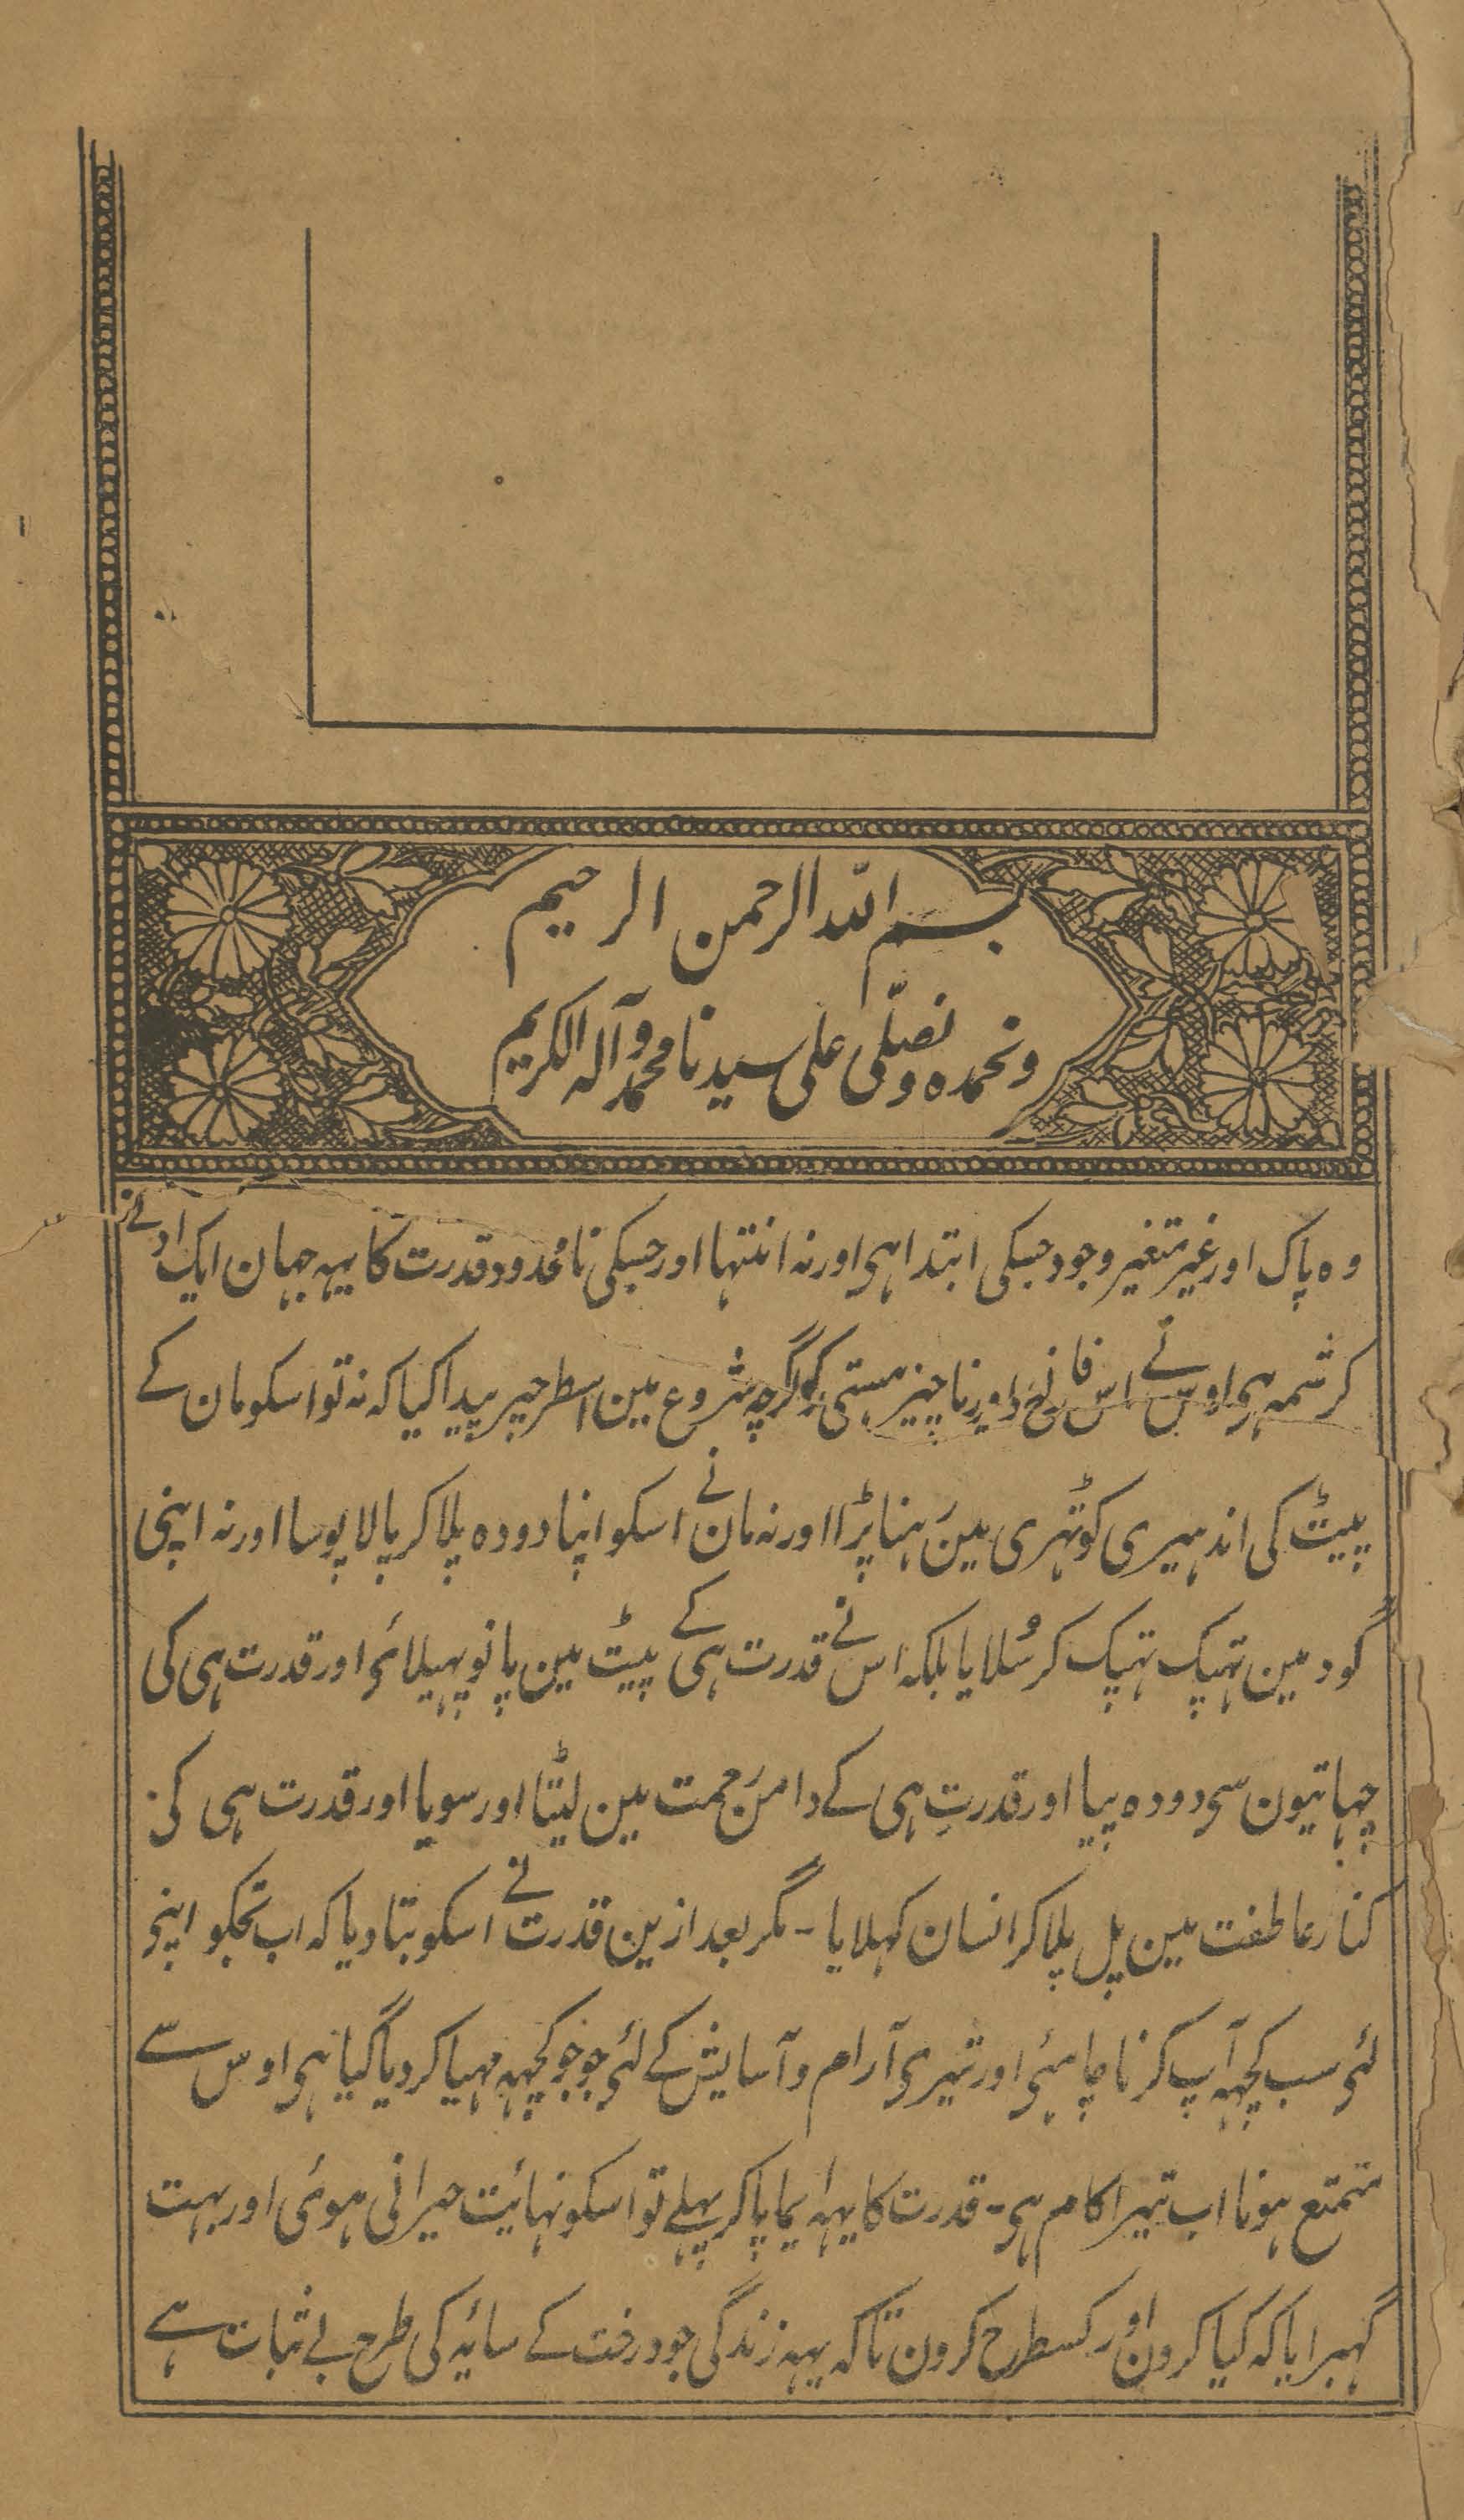 بسم اللہ الرحمن الرحیم
ونحمدہ ونصلّی علی سیدنا محمد وآلہ الکریم
وہ پاک اور غیر متغیر وجود جسکی ابتدا ہی اور نہ انتہا اور جسکی نامحدود قدرت کا یہہ جہان ایک ادنے
کرشمہ ہی اوس نے اس فانی اور ناچیز ہستی کو اگرچہ شروع مین اسطرحپر پیدا کیا کہ نہ تو اسکو مان کے
پیٹ کی اندہیری کوٹہری مین رہنا پڑا اور نہ مان نے اسکو اپنا دودہ پلا کر پالا پوسا اور نہ اپنی
گود مین تہپک تہپک کر سُلایا بلکہ اس نے قدرت ہی کے پیٹ مین پانو پہیلائی اور قدرت ہی کی
چہاتیون سی دودہ پیا اور قدرتِ ہی کے دامن رحمت مین لیٹا اور سویا اور قدرت ہی کی
کنار عاطفت مین پل پلا کر انسان کہلایا - مگر بعد ازین قدرت نے اسکو بتا دیا کہ اب تجکو اپنی
لئی سب کچہہ آپ کرنا چاہئی اور تیری آرام و آسایش کے لئی جو جو کچہہ مہیا کر دیا گیا ہی اوس سے
متمتع ہونا اب تیرا کام ہی - قدرت کا یہہ ایما پا کر پہلے تو اسکو نہائیت حیرانی ہوئی اور بہت
گہبرایا کہ کیا کرون اور کسطرح کرون تاکہ یہہ زندگی جو درخت کے سائیہ کی طرح بے ثبات ہے